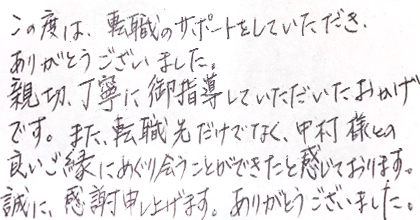 この度は、転職のサポートをしていただき、
ありがとうございました。
親切、丁寧に御指導していただいたおかげ
です。また、転職先だけでなく、中村様との
良いご縁にめぐり会うことができたと感じております。
誠に、感謝申し上げます。ありがとうございました。